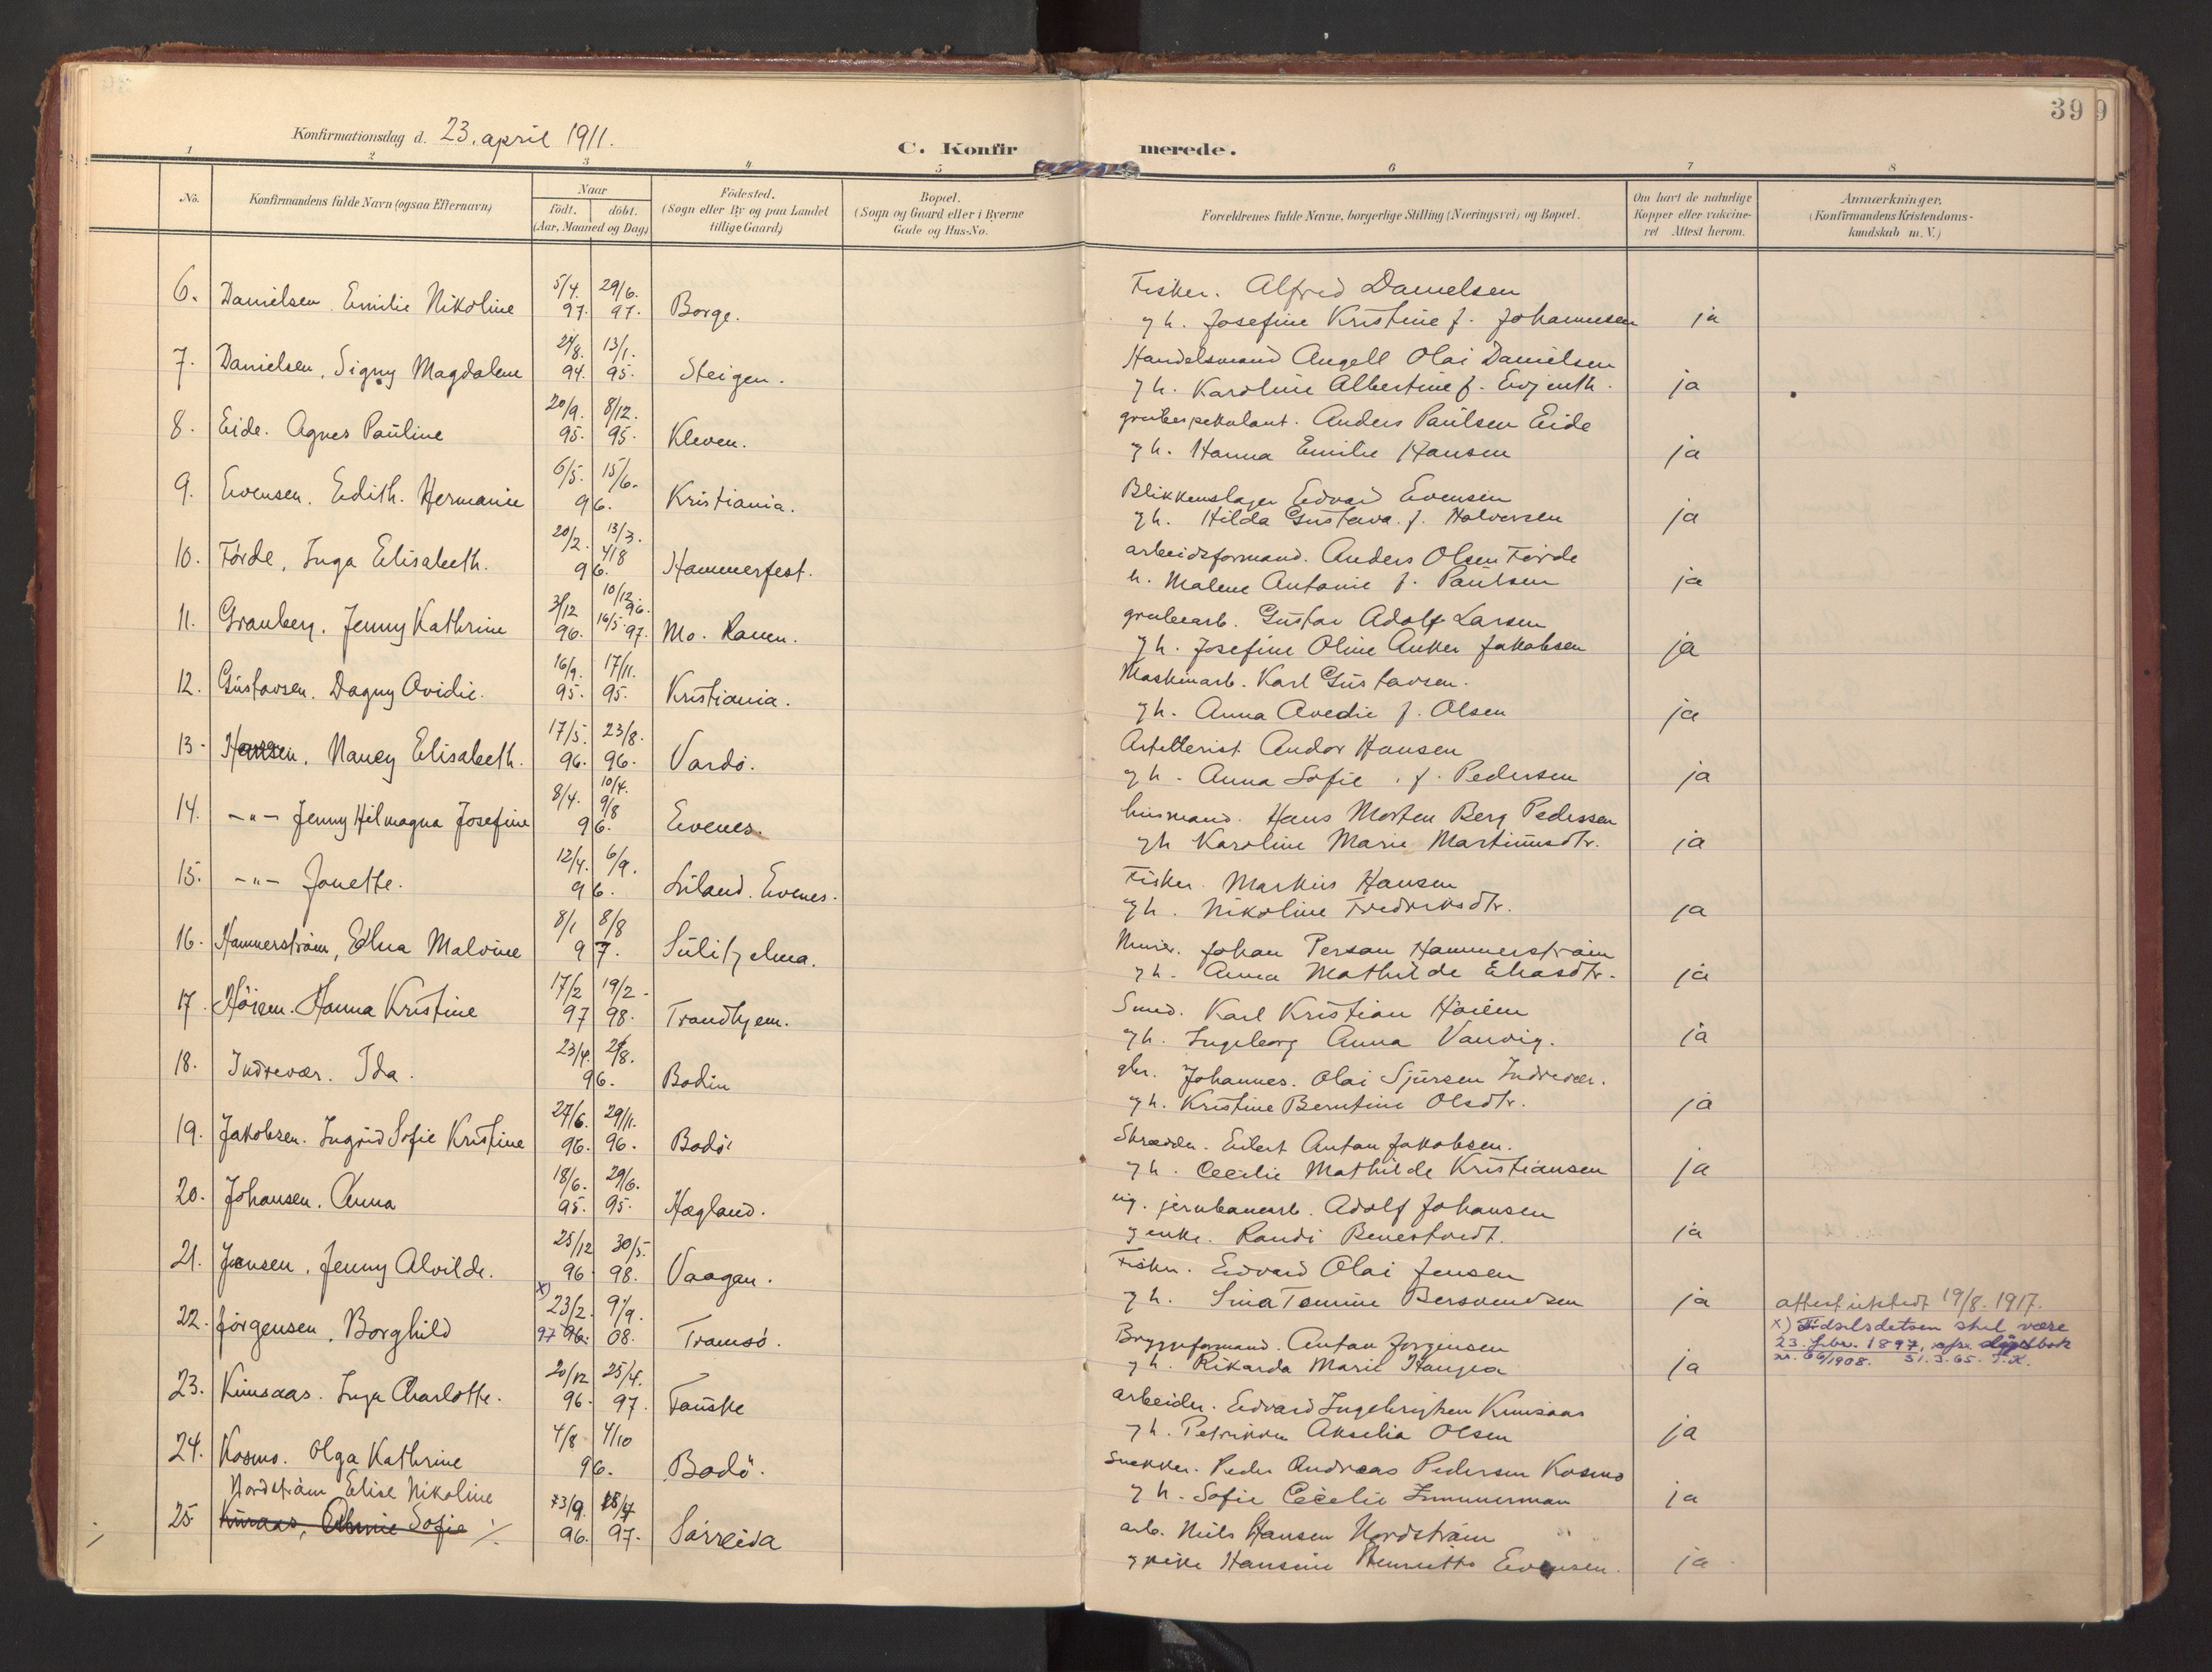 39 9
Konfirmationsdag d. 23. april 1911.
C. Konfir merede.
1 2 3 4 5 6 7 8
No.
Konfirmandens fulde Navn (ogsaa Efternavn)
Naar
födt. döbt.
(Aar, Maaned og Dag)
Födested.
(Sogn eller By og paa Landet
tillige Gaard)
Bopæl.
(Sogn og Gaard eller i Byerne
Gade og Hus-No.
Forældrenes fulde Navne, borgerlige Stilling (Næringsvei) og Bopæl.
Om havt de naturlige
Kopper eller vakcine-
ret Attest herom.
Anmærkninger.
(Konfirmandens Kristendoms-
kundskab m. V.)
6. Danielsen. Emilie Nikoline 5/4. 97. 29/6. 97. Borge.
Fisker. Alfred Danielsen
g h. Josefine Kristine f. Johannesen ja
7. Danielsen, Signy Magdalene 24/8. 94. 13/1. 95. Steigen.
Handelsmand Angell Olai Danielsen
g h. Karoline Albertine f. Evjenth. ja
8. Eide. Agnes Pauline 20/9. 95. 8/12. 95. Kleven.
grubespekulant. Anders Paulsen Eide
g h. Hanna Emilie Hansen ja
9. Evensen. Edith. Hermanie 6/5. 15/6. 96. Kristiania.
Blikkenslager Edvard Evensen
g h. Hilda Gustava. f. Halvorsen ja
10. Förde, Inga Elisabeth. 20/2. 13/3. 4/8 96. Hammerfest.
arbeidsformand. Anders Olsen Förde
h. Malene Antonie f. Paulsen ja
11. Granberg. Jenny Kathrine 3/12 96. 10/12 96. 14/5 97. Mo. Ranen.
grubearb. Gustav Adolf Larsen
g h. Josefine Oline Anker Jakobsen ja
12. Gustavsen. Dagny Ovidie. 16/9. 95. 17/11. 95. Kristiania.
Maskinarb. Karl Gustavsen.
g h. Anna Avedie f. Olsen ja
13. Hansen, Nancy Elisabeth. 17/5. 96. 23/8. 96. Vardö.
Artillerist Andor Hansen
g h. Anna Sofie. f. Pedersen ja
14. -"- Jenny Hilmagna Josefine 8/4. 10/4. 9/8 96. Evenes.
husmand. Hans Morten Berg Pedersen
g h Karoline Marie Martinusdtr. ja
15. -"- Jonette. 12/4. 6/9. 96. Liland. Evenes.
Fisker. Markus Hansen
g h. Nikoline Fredriksdtr. ja
16. Hammerström, Edna Malvine 8/1 8/8 97. Sulitjelma.
Murer. Johan Persan Hammerström
g h. Anna Mathilde Eliasdtr. ja
17. Höiem. Hanna Kristine 17/2 97 19/2. 98. Trondhjem.
Smed. Karl Kristian Höiem
g h. Ingeborg Anna Vanvig. ja
18. Indrevær. Ida. 23/4. 96. Bodin
gbr. Johannes. Olai Sjursen Indrevær.
g h. Kristine Berntine Olsdtr. ja
19. Jakobsen. Ingrid Sofie Kristine 27/6. 96. 29/11. 96. Bodö
Skrædder. Eilert Anton Jakobsen.
g h. Cecilie Mathilde Kristiansen ja
20. Johansen. Anna 18/6. 95. 29/6. 95. Hægland.
ug. jernbanearb. Adolf Johansen
g enke. Randi Benestvedt. ja
21. Jensen, Jenny Alvilde. 25/12 96 30/5. 98. Vaagan.
Fisker. Edvard Olai Jensen
g h. Sina Tomine Bersvendsen ja
22. Jörgensen, Borghild x) 23/2. 97 96. 9/9. 08. Tromsö.
Bryggeformand. Anton Jörgensen
g h. Rikarda Marie Haugea ja
attest utstedt 19/8. 1917.
x) Födselsdatoen skal være
23. febr. 1897, efr. dåpsbok
nr. 66/1908. 31.3.65.
23. Kinsaas. Inga Charlotte. 20/12 96. 25/4. 97. Fauske
arbeider. Edvard Ingebrigtsen Kinsaas
g h. Petrikke Akselia Olsen ja
24. Kosmo. Olga Kathrine 4/8 4/10 96. Bodö.
Snekker. Peder Andreas Pedersen Kosmo
g h. Sofie Cecilie Zimmerman ja
Nordström Elise Nikoline
25 Kuraas, Sofie 23/9. 96. 97. Sörreisa
arb. Nils Hansen Nordström
g pike Hansine Henriette Evensen. ja